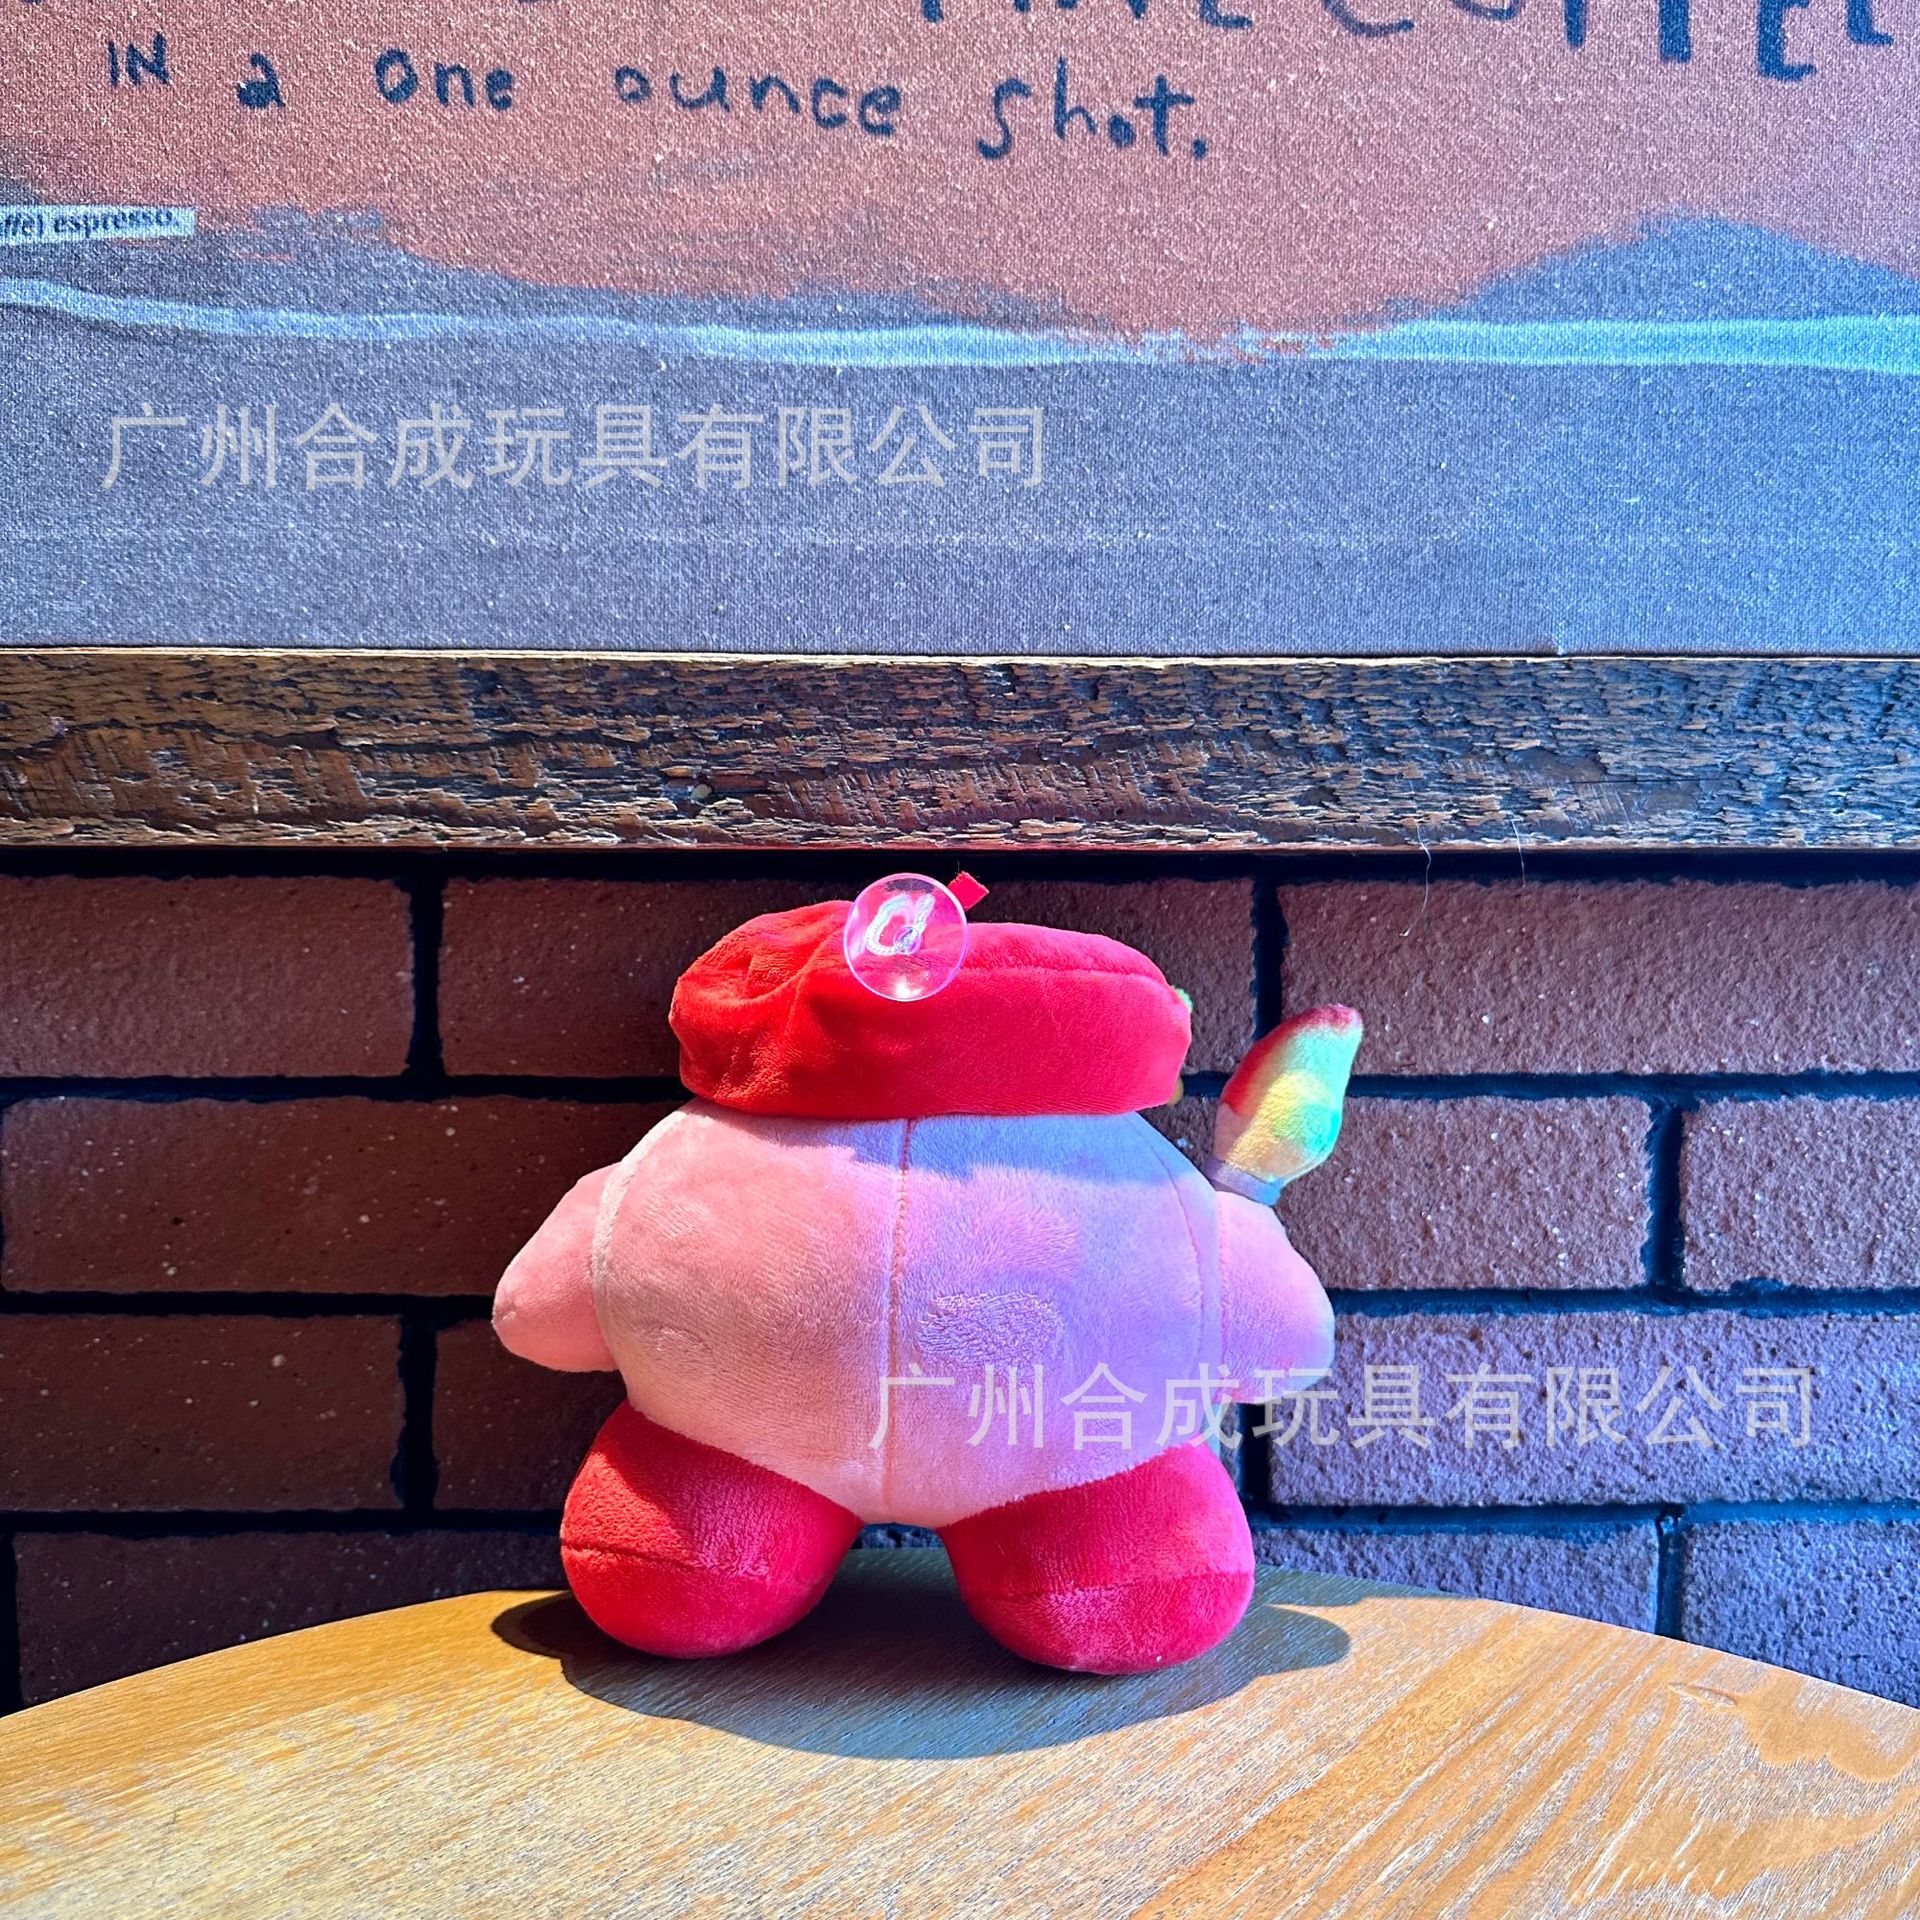 COFFEE
IN a one ounce shot.
espresso.
广州合成玩具有限公司
广州合成玩具有限公司